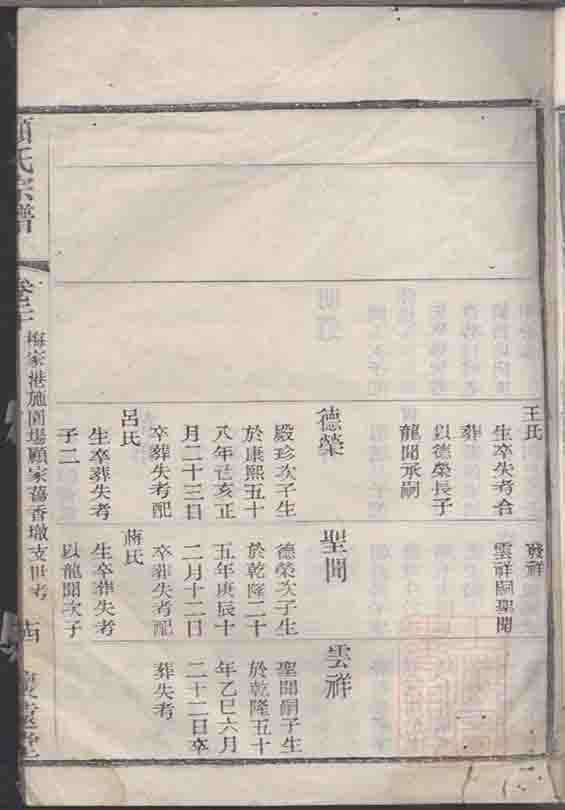 王氏
生卒失考合
葬
以德榮長子
龍聞承嗣
德榮
殿珍次子生
於康熙五十
八年己亥正
月二十三日
卒葬失考配
呂氏
生卒葬失考
子二
發祥
雲祥嗣聖聞
聖聞
德榮次子生
於乾隆二十
五年庚辰十
二月十二日
卒葬失考配
蔣氏
生卒葬失考
以龍聞次子
雲祥
聖聞嗣子生
於乾隆五十
年乙巳六月
二十二日卒
葬失考
顧氏宗譜
梅家港施圍場顧家蕩香墩支世考